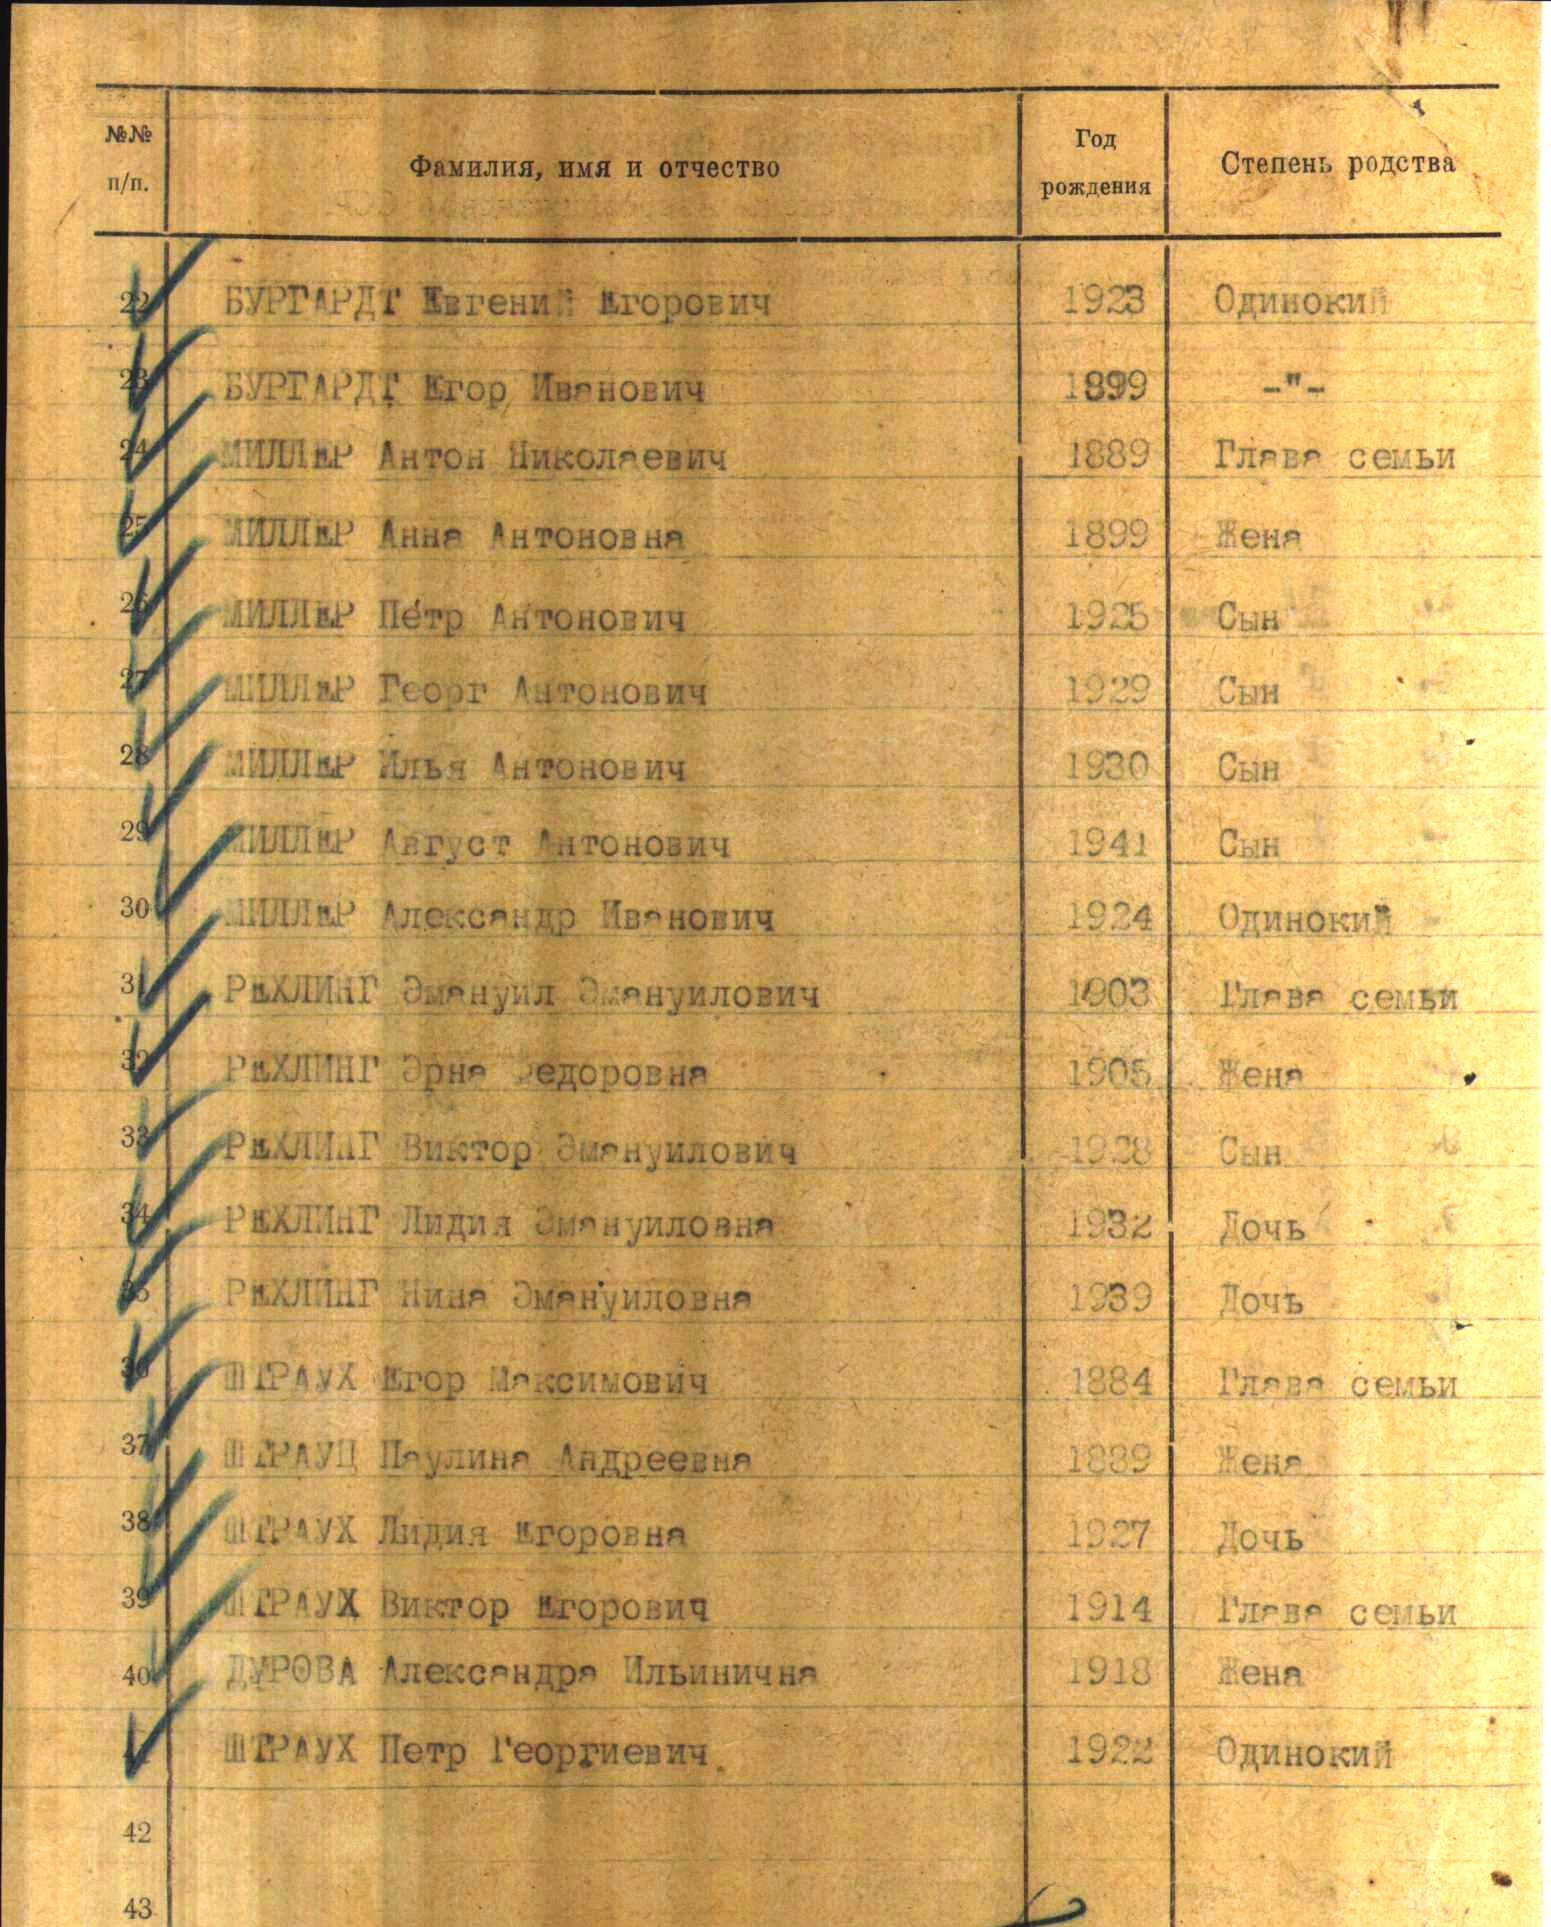 №№ п/п. Фамилия, имя и отчество Год рождения Степень родства
22 БУРГАРДТ Евгений Егорович 1923 Одинокий
23 БУРГАРДТ Егор Иванович 1899 -"-
24 МИЛЛЕР Антон Николаевич 1889 Глава семьи
25 МИЛЛЕР Анна Антоновна 1899 Жена
26 МИЛЛЕР Петр Антонович 1925 Сын
27 МИЛЛЕР Георг Антонович 1929 Сын
28 МИЛЛЕР Илья Антонович 1930 Сын
29 МИЛЛЕР Август Антонович 1941 Сын
30 МИЛЛЕР Александр Иванович 1924 Одинокий
31 РЕХЛИНГ Эмануил Эмануилович 1903 Глава семьи
32 РЕХЛИНГ Эрна Федоровна 1905 Жена
33 РЕХЛИНГ Виктор Эмануилович 1928 Сын
34 РЕХЛИНГ Лидия Эмануиловна 1932 Дочь
35 РЕХЛИНГ Нина Эмануиловна 1939 Дочь
36 ШТРАУХ Егор Максимович 1884 Глава семьи
37 ШТРАУЦ Паулина Андреевна 1889 Жена
38 ШТРАУХ Лидия Егоровна 1927 Дочь
39 ШТРАУХ Виктор Егорович 1914 Глава семьи
40 ДУРОВА Александра Ильинична 1918 Жена
41 ШТРАУХ Петр Георгиевич. 1922 Одинокий
42
43